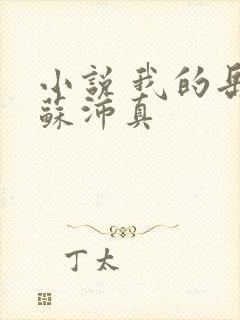 小說我的岳
蘇沛真
丁太